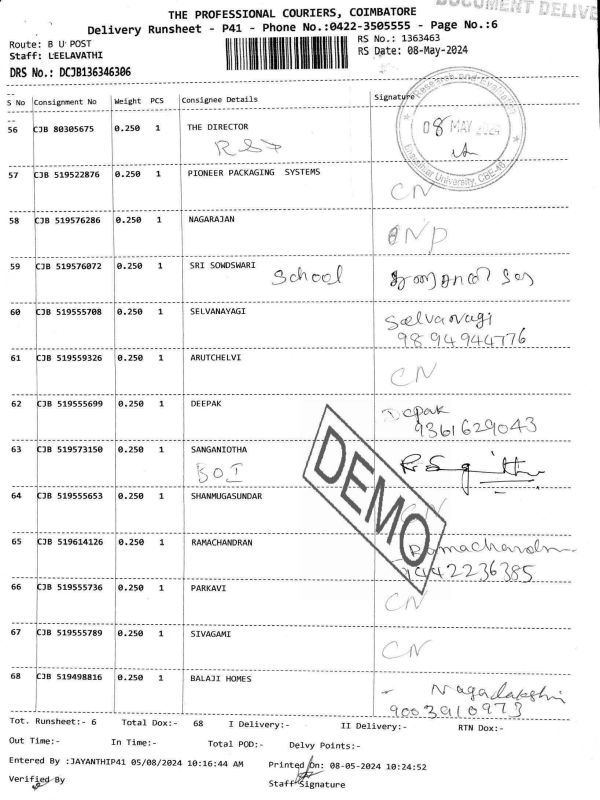 DOCUMENT DELIVE
THE PROFESSIONAL COURIERS, COIMBATORE
Delivery Runsheet - P41 - Phone No.:0422-3505555 - Page No.:6
Route: B U POST
RS No.: 1363463
Staff: LEELAVATHI
RS Date: 08-May-2024
DRS No.: DCJB136346306
S No Consignment No Weight PCS Consignee Details Signature
Research and Evaluation
08 MAY 2024
Bharathiar University, CBE-46
56 CJB 80305675 0.250 1 THE DIRECTOR
57 CJB 519522876 0.250 1 PIONEER PACKAGING SYSTEMS
CN
58 CJB 519576286 0.250 1 NAGARAJAN
NP
59 CJB 519576072 0.250 1 SRI SOWDSWARI
School
60 CJB 519555708 0.250 1 SELVANAYAGI
Selvanagi
9894944776
61 CJB 519559326 0.250 1 ARUTCHELVI
CN
62 CJB 519555699 0.250 1 DEEPAK
Depak
9361629043
63 CJB 519573150 0.250 1 SANGANIOTHA
BOI
64 CJB 519555653 0.250 1 SHANMUGASUNDAR
CN
DEMO
65 CJB 519614126 0.250 1 RAMACHANDRAN
Ramachandran
9442236385
66 CJB 519555736 0.250 1 PARKAVI
CN
67 CJB 519555789 0.250 1 SIVAGAMI
CN
68 CJB 519498816 0.250 1 BALAJI HOMES
- Nagalakshmi
9003910973
Tot. Runsheet:- 6 Total Dox:- 68 I Delivery:- II Delivery:- RTN Dox:-
Out Time:- In Time:- Total POD:- Delvy Points:-
Entered By :JAYANTHIP41 05/08/2024 10:16:44 AM Printed On: 08-05-2024 10:24:52
Verified By Staff Signature